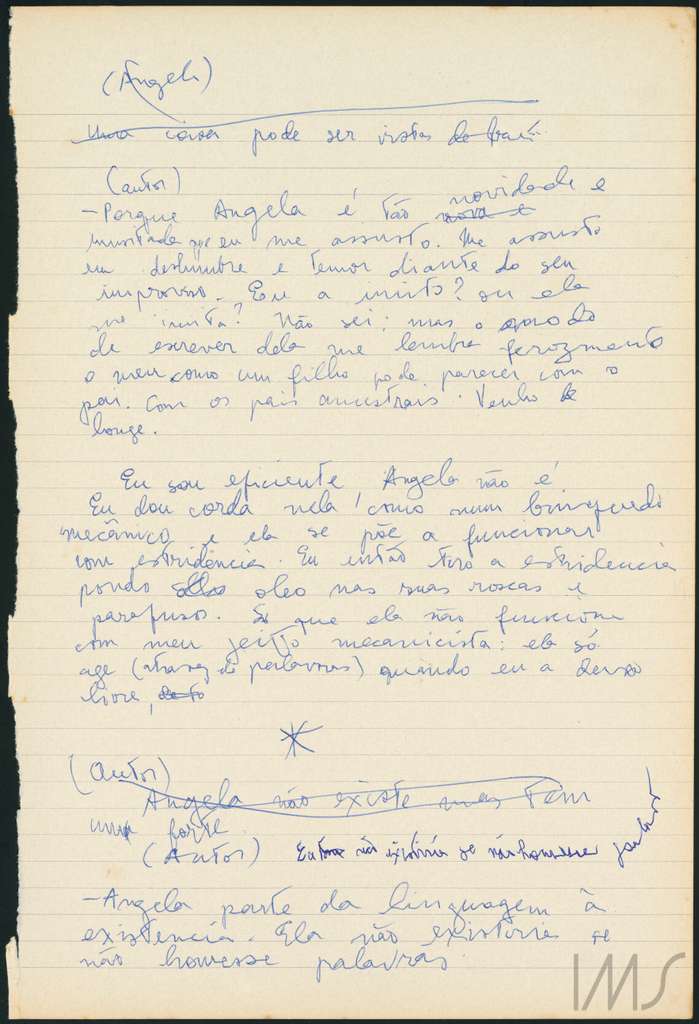 (Angela)
Uma coisa pode ser vista de
(autor)
novidade e
- Porque Angela é tão nova e
inusitada que eu me assusto. Me assusto
em deslumbre e temor diante do seu
improviso. Eu a imito? ou ela
me imita? Não sei; mas o modo
de escrever dela me lembra ferozmente
o meu como um filho pode parecer com o
pai. Com os pais ancestrais. Venho de
longe.
Eu sou eficiente Angela não é
Eu dou corda nela como num brinquedo
mecânico e ela se põe a funcionar
com estridência. Eu então tiro a estridencia
pondo oleo nas suas roscas e
parafuso. Só que ela não funciona
com meu jeito mecanicista: ela só
age (atravez de palavras) quando eu a deixo
livre,
(Autor)
Angela não existe mas tem
uma forte
(Autor) Eu não existiria se não houvesse palavras
- Angela parte da linguagem à
existencia. Ela não existiria se
não houvesse palavras.
IMS